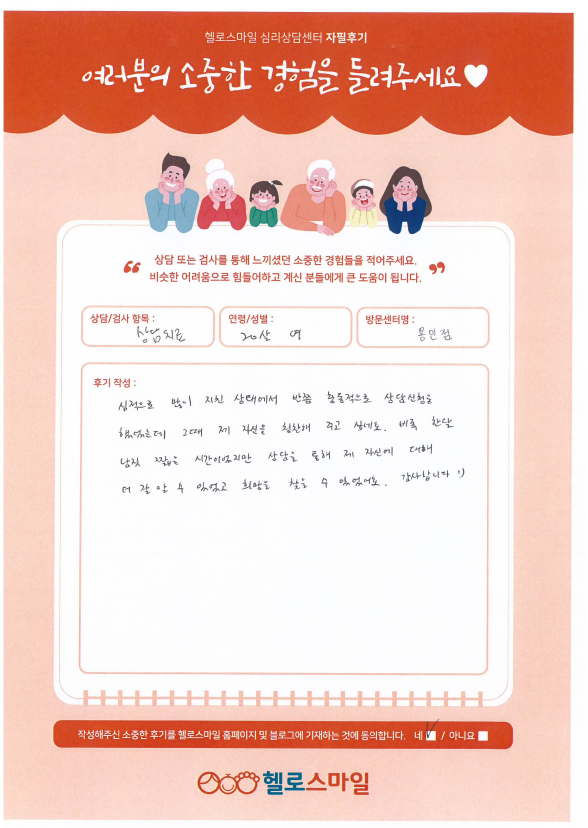 헬로스마일 심리상담센터 자필후기
여러분의 소중한 경험을 들려주세요♥
“ 상담 또는 검사를 통해 느끼셨던 소중한 경험들을 적어주세요.
비슷한 어려움으로 힘들어하고 계신 분들에게 큰 도움이 됩니다. ”
상담/검사 항목 : 상담치료
연령/성별 : 20살 여
방문센터명 : 용인점
후기 작성 :
심적으로 많이 지친 상태에서 반쯤 충동적으로 상담신청을
했었는데 그때 제 자신을 칭찬해 주고 싶네요. 비록 한달
남짓 짧은 시간이었지만 상담을 통해 제 자신에 대해
더 잘 알 수 있었고 희망을 찾을 수 있었어요. 감사합니다 :)
작성해주신 소중한 후기를 헬로스마일 홈페이지 및 블로그에 기재하는 것에 동의합니다. 네 ✓ / 아니요
헬로스마일